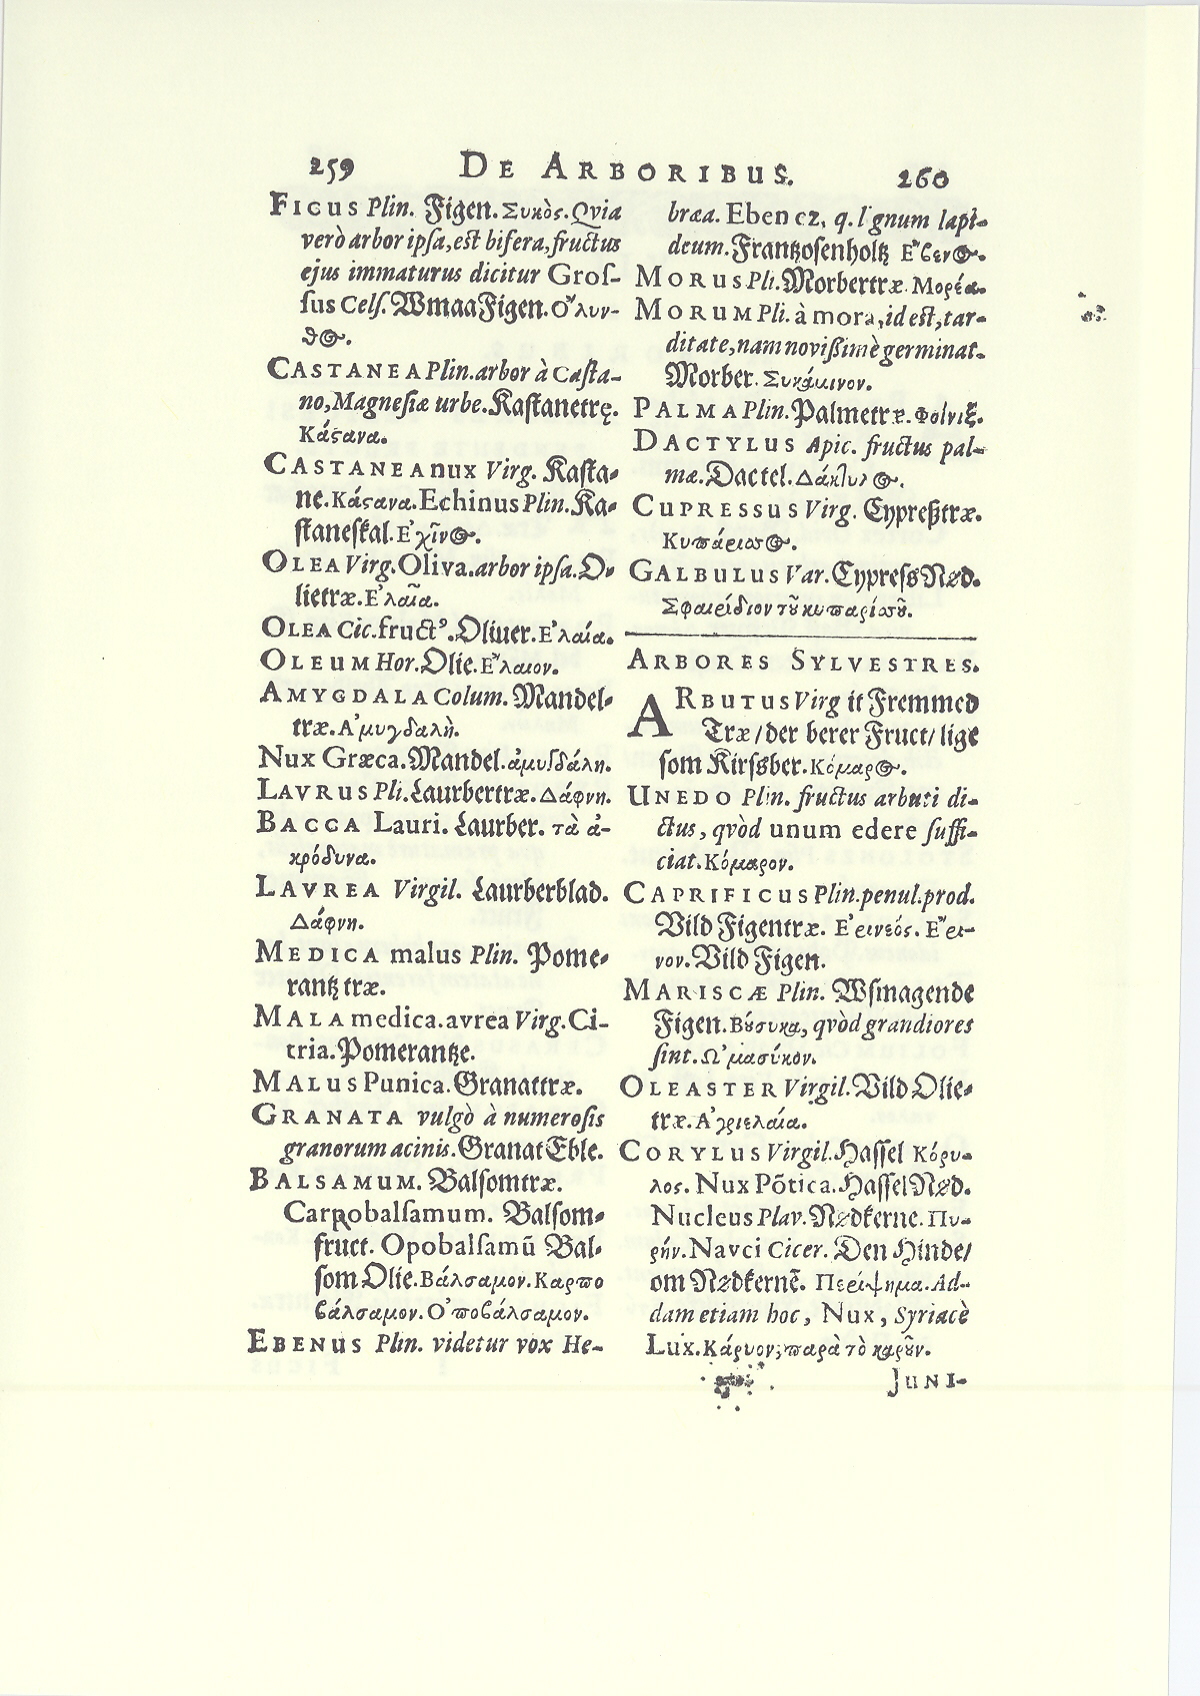 259 DE ARBORIBUS. 260
FICUS Plin. Figen. Συκὸς. Qvia
verò arbor ipſa, eſt bifera, fructus
ejus immaturus dicitur Groſ-
ſus Celſ. WmaaFigen. Ο῎λυν-
θ⊙.
CASTANEA Plin. arbor à Caſta-
no, Magneſiæ urbe. Kaſtanetrę.
Κάϛανα.
CASTANEA nux Virg. Kaſta-
ne. Κάϛανα. Echinus Plin. Ka-
ſtaneſkal. Ε᾿χῖν⊙.
OLEA Virg. Oliva. arbor ipſa. O-
lietræ. Ε᾿λαῖα.
OLEA Cic. fructꝰ. Oliuer. Ε᾿λαία.
OLEUM Hor. Olie. Ε῎λαιον.
AMYGDALA Colum. Mandel-
træ. Α᾿μυγδαλὴ.
Nux Græca. Mandel. ἀμυγδάλη.
LAVRUS Pli. Laurbertræ. Δάφνη.
BACCA Lauri. Laurber. τὰ ἀ-
κρόδυνα.
LAVREA Virgil. Laurberblad.
Δάφνη.
MEDICA malus Plin. Pome-
rantz træ.
MALA medica. avrea Virg. Ci-
tria. Pomerantze.
MALUS Punica. Granattræ.
GRANATA vulgò à numeroſis
granorum acinis. Granat Eble.
BALSAMUM. Balſomtræ.
Carpobalſamum. Balſom-
fruct. Opobalſamū Bal-
ſom Olie. Βάλσαμον. Καρπο
βάλσαμον. Ο᾿ποβάλσαμον.
EBENUS Plin. videtur vox He-
bræa. Eben cz, q. lignum lapi-
deum. Frantzoſenholtz Ε῎βεν⊙.
MORUS Pli. Morbertræ. Μορέα.
MORUM Pli. à mora, id eſt, tar-
ditate, nam noviſſimè germinat.
Morber. Συκάμινον.
PALMA Plin. Palmetræ. Φοίνιξ.
DACTYLUS Apic. fructus pal-
mæ. Dactel. Δάκτυλ⊙.
CUPRESSUS Virg. Cypreßtræ.
Κυπάρισσ⊙.
GALBULUS Var. Cypreſs Nød.
Σφαιρίδιον τοῦ κυπαρίσσου.
ARBORES SYLVESTRES.
ARBUTUS Virg it Fremmed
Træ/ der berer Fruct/ lige
ſom Kirſsber. Κόμαρ⊙.
UNEDO Plin. fructus arbuti di-
ctus, qvòd unum edere ſuffi-
ciat. Κόμαρον.
CAPRIFICUS Plin. penul. prod.
Vild Figentræ. Ε᾿ρινεός. Ε῎ρι-
νον. Vild Figen.
MARISCÆ Plin. Wſmagende
Figen. Βύσυκα, qvòd grandiores
ſint. Ω᾿μασύκον.
OLEASTER Virgil. Vild Olie-
træ. Α᾿γριελαία.
CORYLUS Virgil. Haſſel Κόρυ-
λος. Nux Põtica. Haſſel Nød.
Nucleus Plav. Nødkerne. Πυ-
ρήν. Navci Cicer. Den Hinde/
om Nødkernē. Περίψημα. Ad-
dam etiam hoc, Nux, Syriacè
Lux. Κάρυον, παρὰ τὸ καροῦν.
JUNI-